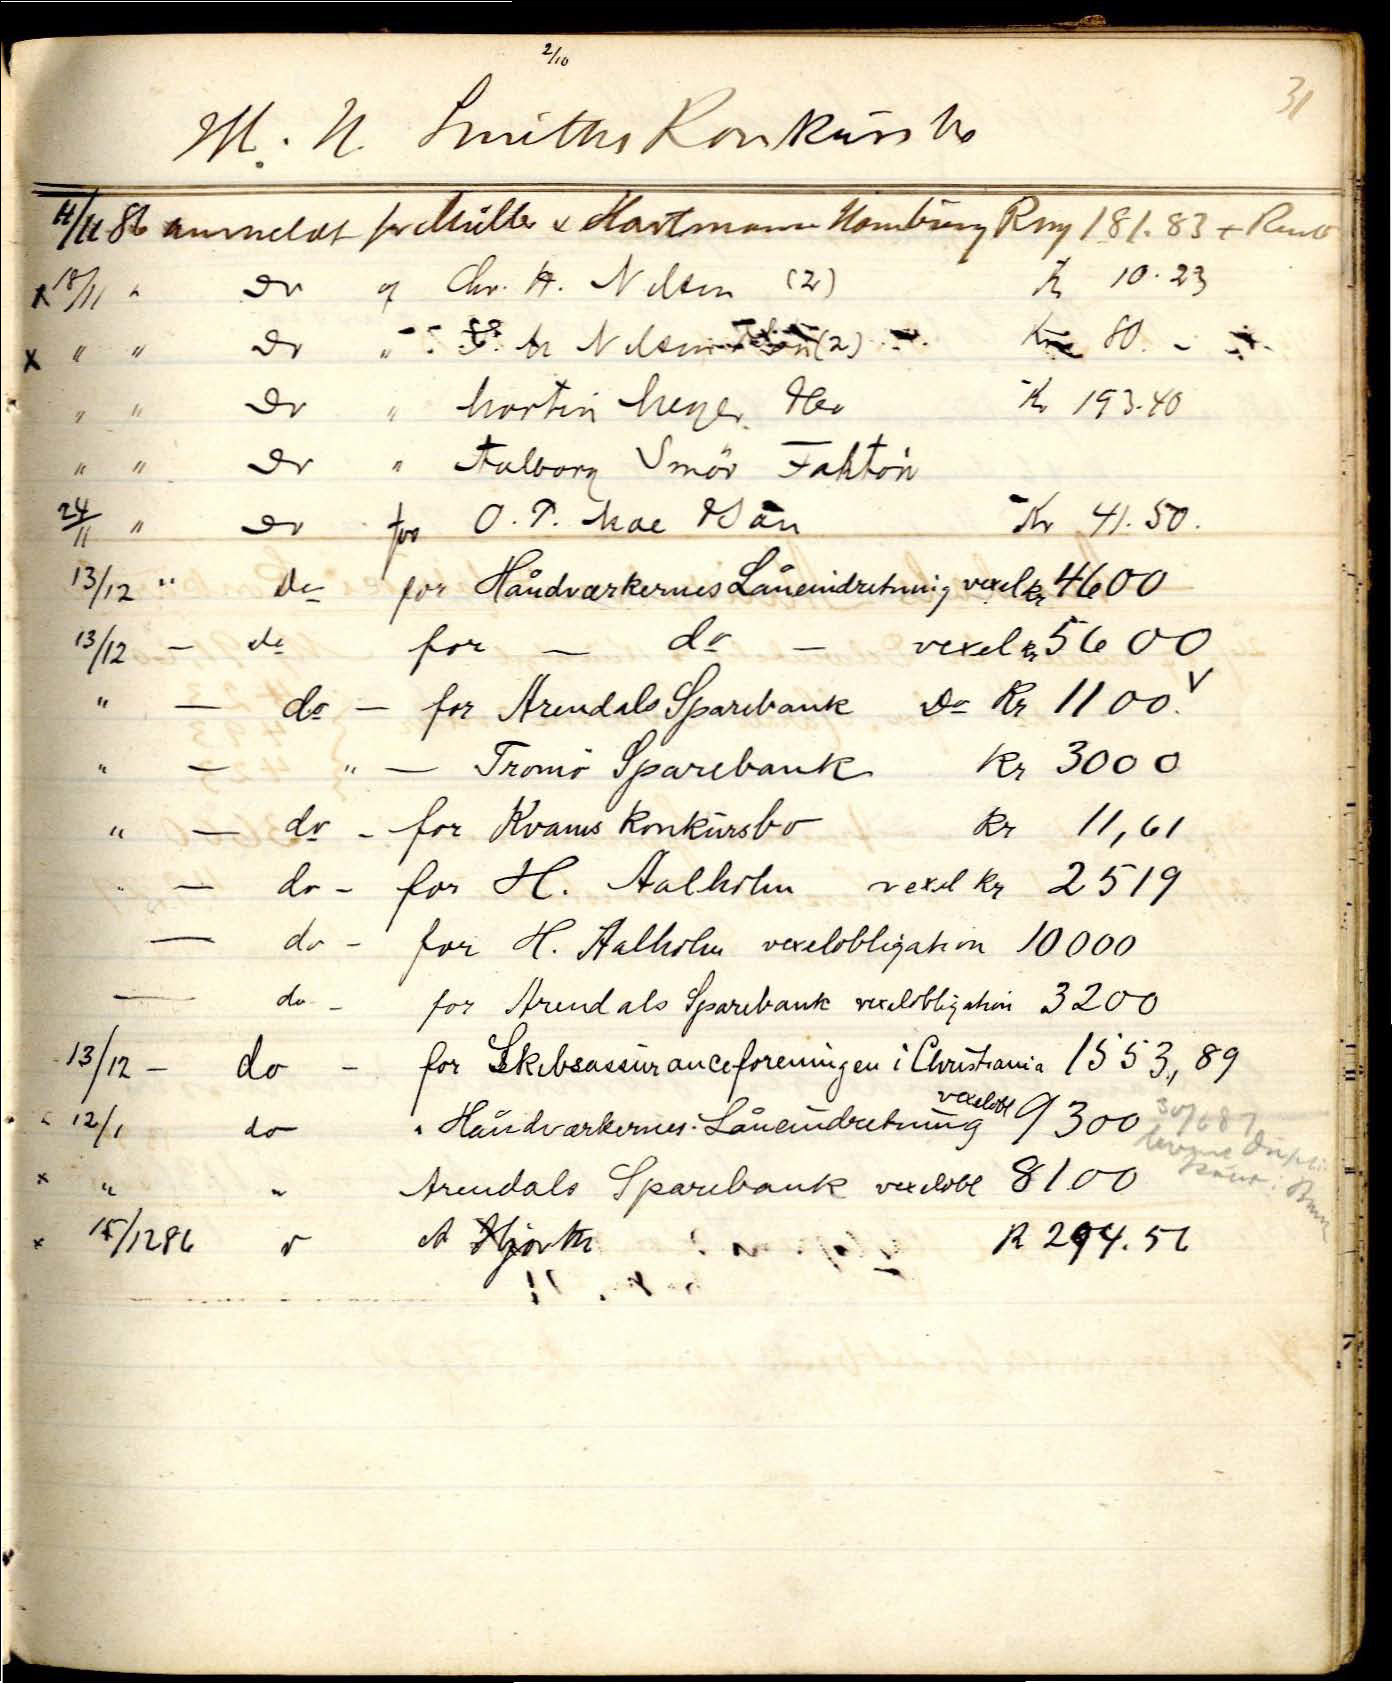 2/10
31
M. N. Smiths Konkursbo
11/11 86 anmeldt for Müller & Hartmann Hamburg Rmg 181.83 + Rente
x 18/11 " Do af Chr. H. Nilsen (2) Kr 10.23
x " " Do " Nilsen (2) Kr 80. -
" " Do " Morten Meyer Kr 193.40
" " Do " Aalborg Smör
24/11 " Do for O. T. Kr 41.50.
13/12 " do for Håndværkernes Låneindretning vexel kr 4600
13/12 — do for — do — vexel kr 5600
" — do — for Arendals Sparebank Do Kr 1100.
" — " — Tromö Sparebank Kr 3000
" — do - for Kvams Konkursbo Kr 11,61
" — do - for H. Aalholm vexel kr 2519
— do - for H. Aalholm vexelobligation 10000
— do - for Arendals Sparebank vexelobligation 3200
13/12 - do - for Skibsassuranceforeningen i Christiania 1553,89
12/1 do " Håndværkernes Låneindretning vexelobl 9300
x " " Arendals Sparebank vexelobl 8100
x 15/12 86 A Hjorth K 294.56